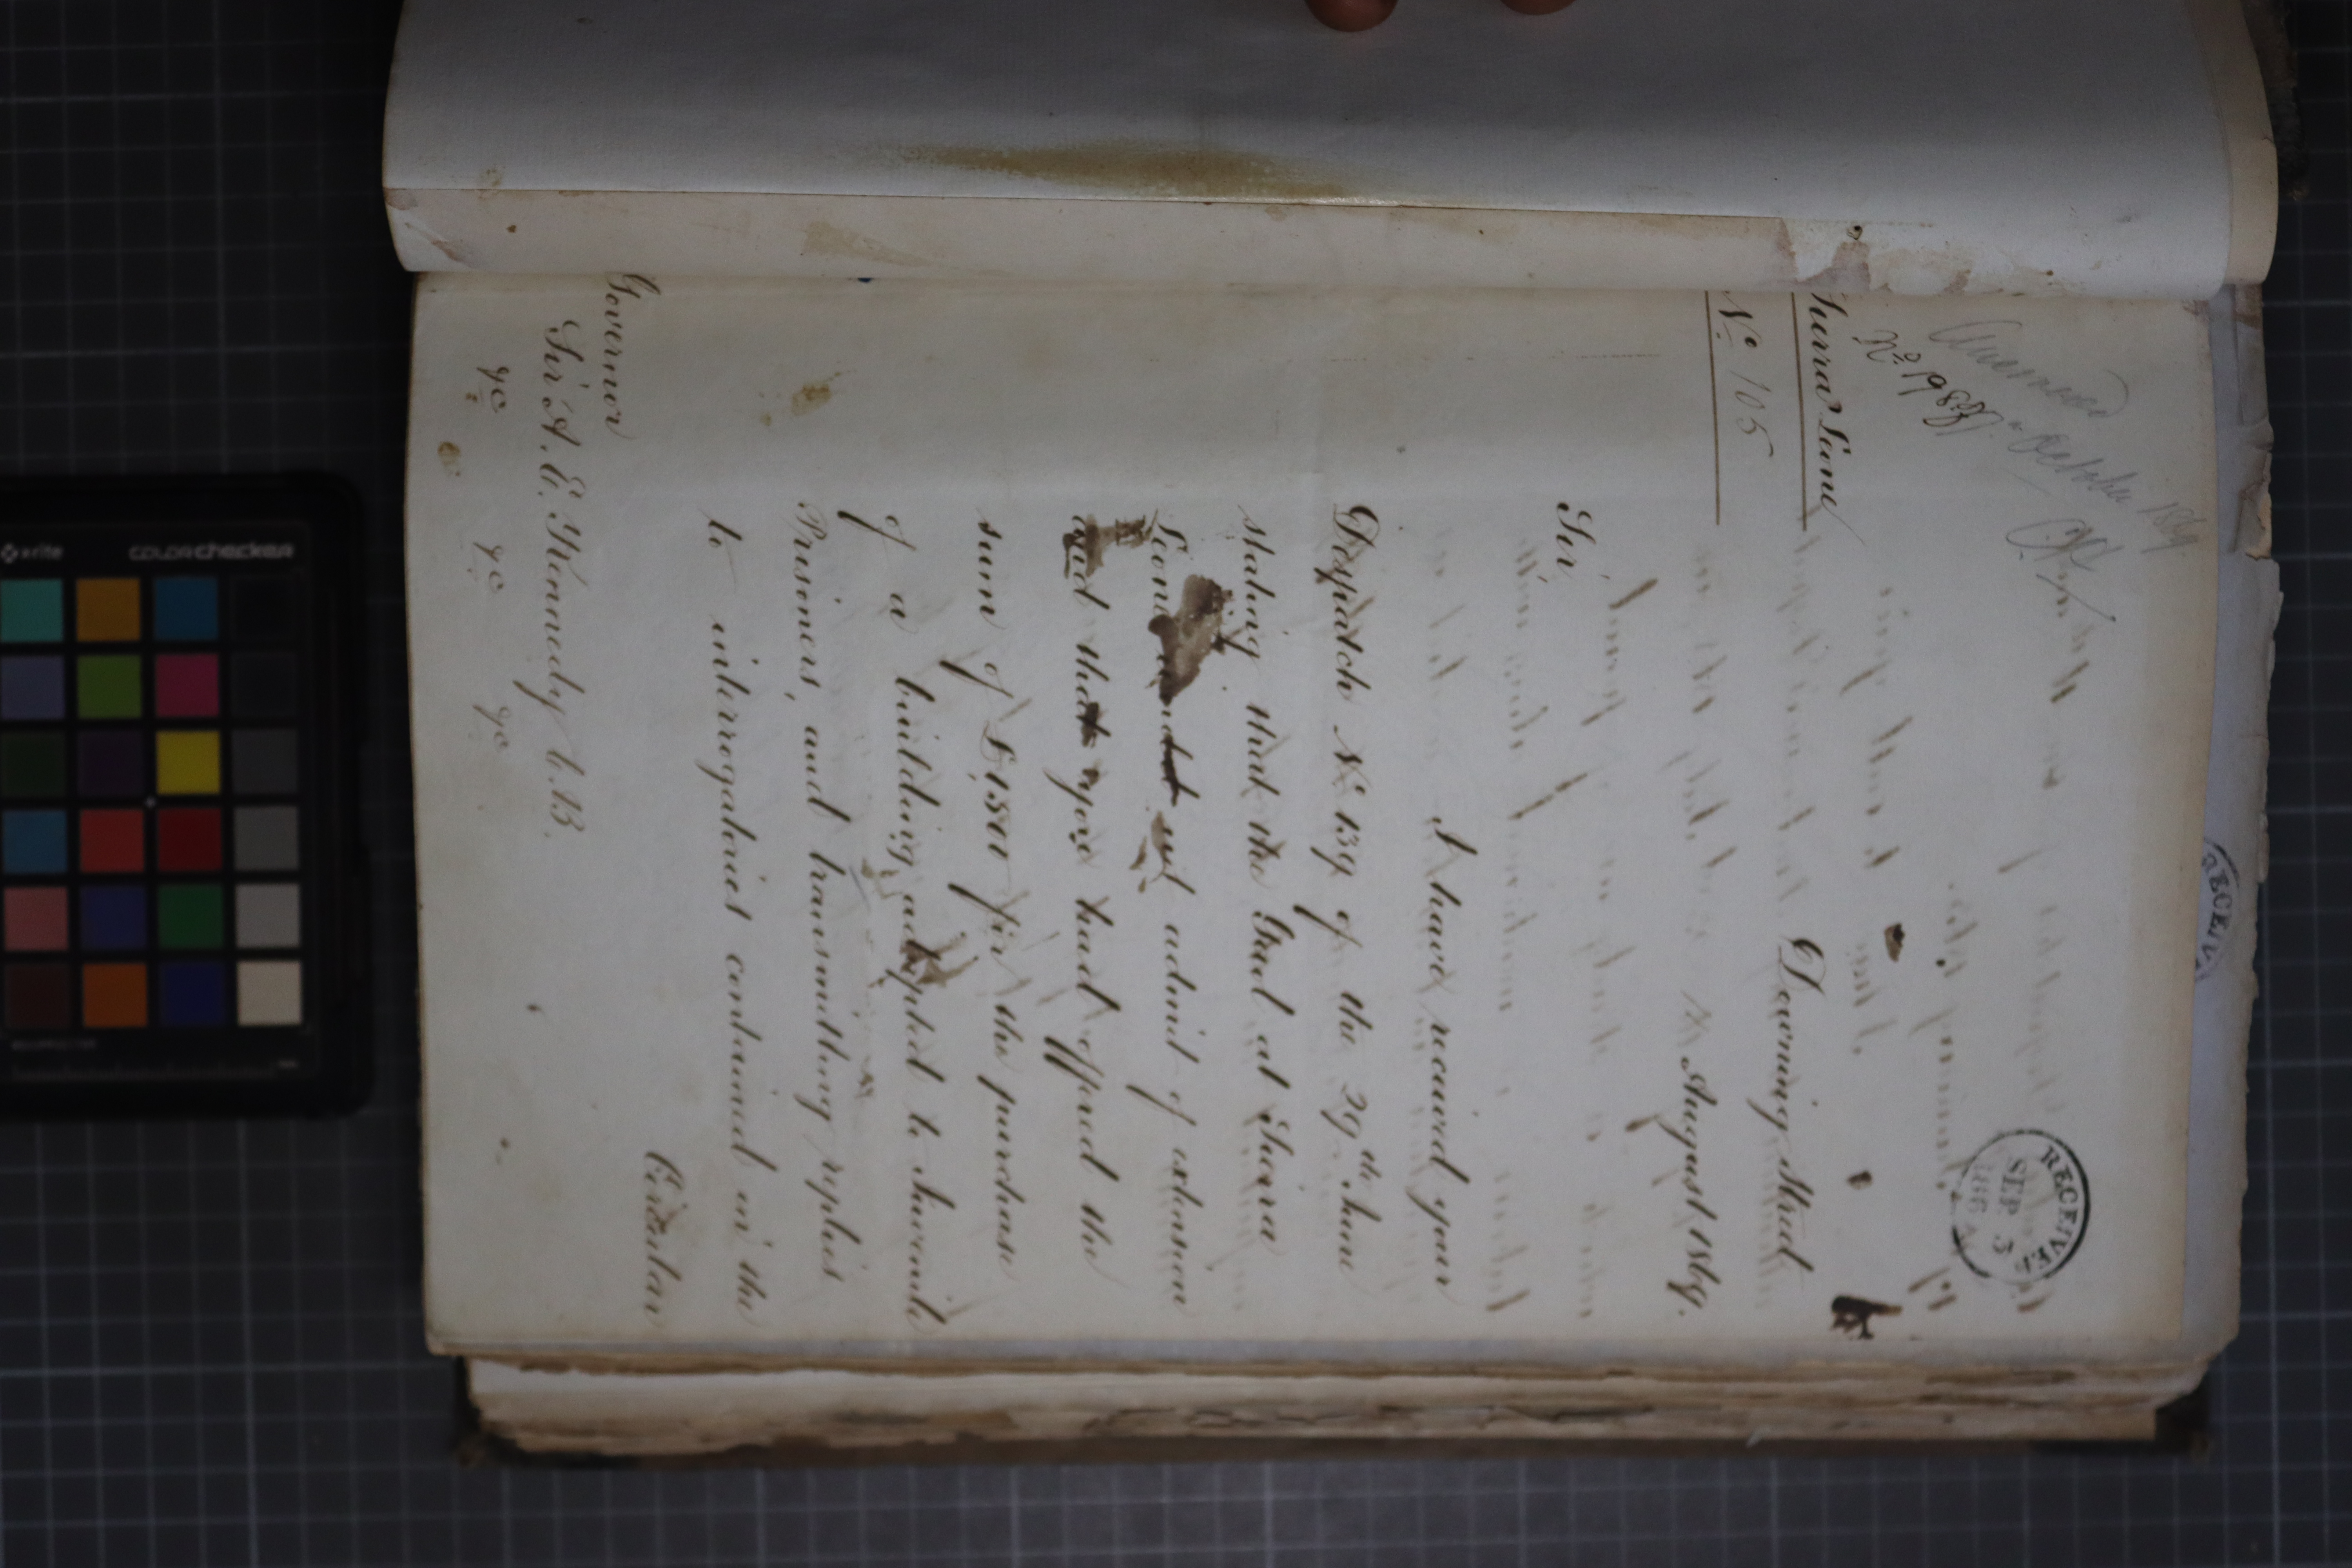 Answered
No. 198
October 1869
RECEIVED
SEP 3
1869
Sierra Leone
No. 105
Downing Street
August 1869.
Sir,
I have received your
Despatch No. 139 of the 29th June
stating that the Gaol at Sierra
Leone would not admit of extension
and that you had offered the
sum of £1,800 for the purchase
of a building adapted to Juvenile
Prisoners, and transmitting replies
to interrogatories contained in the
Circular
Governor
Sir A. E. Kennedy C.B.
&c &c &c
x-rite colorchecker